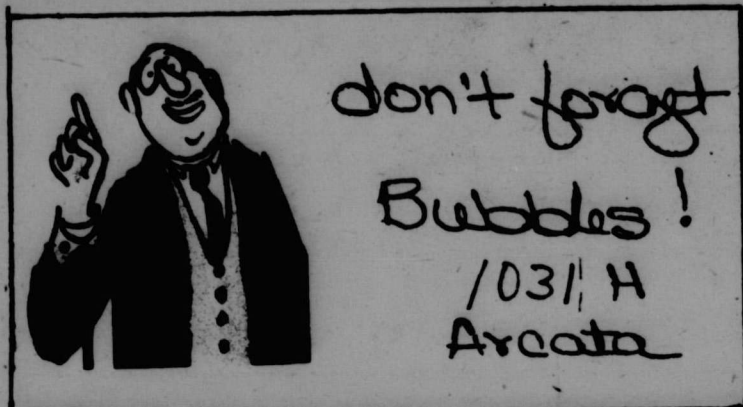 don't forget
Bubbles!
1031 H
Arcata